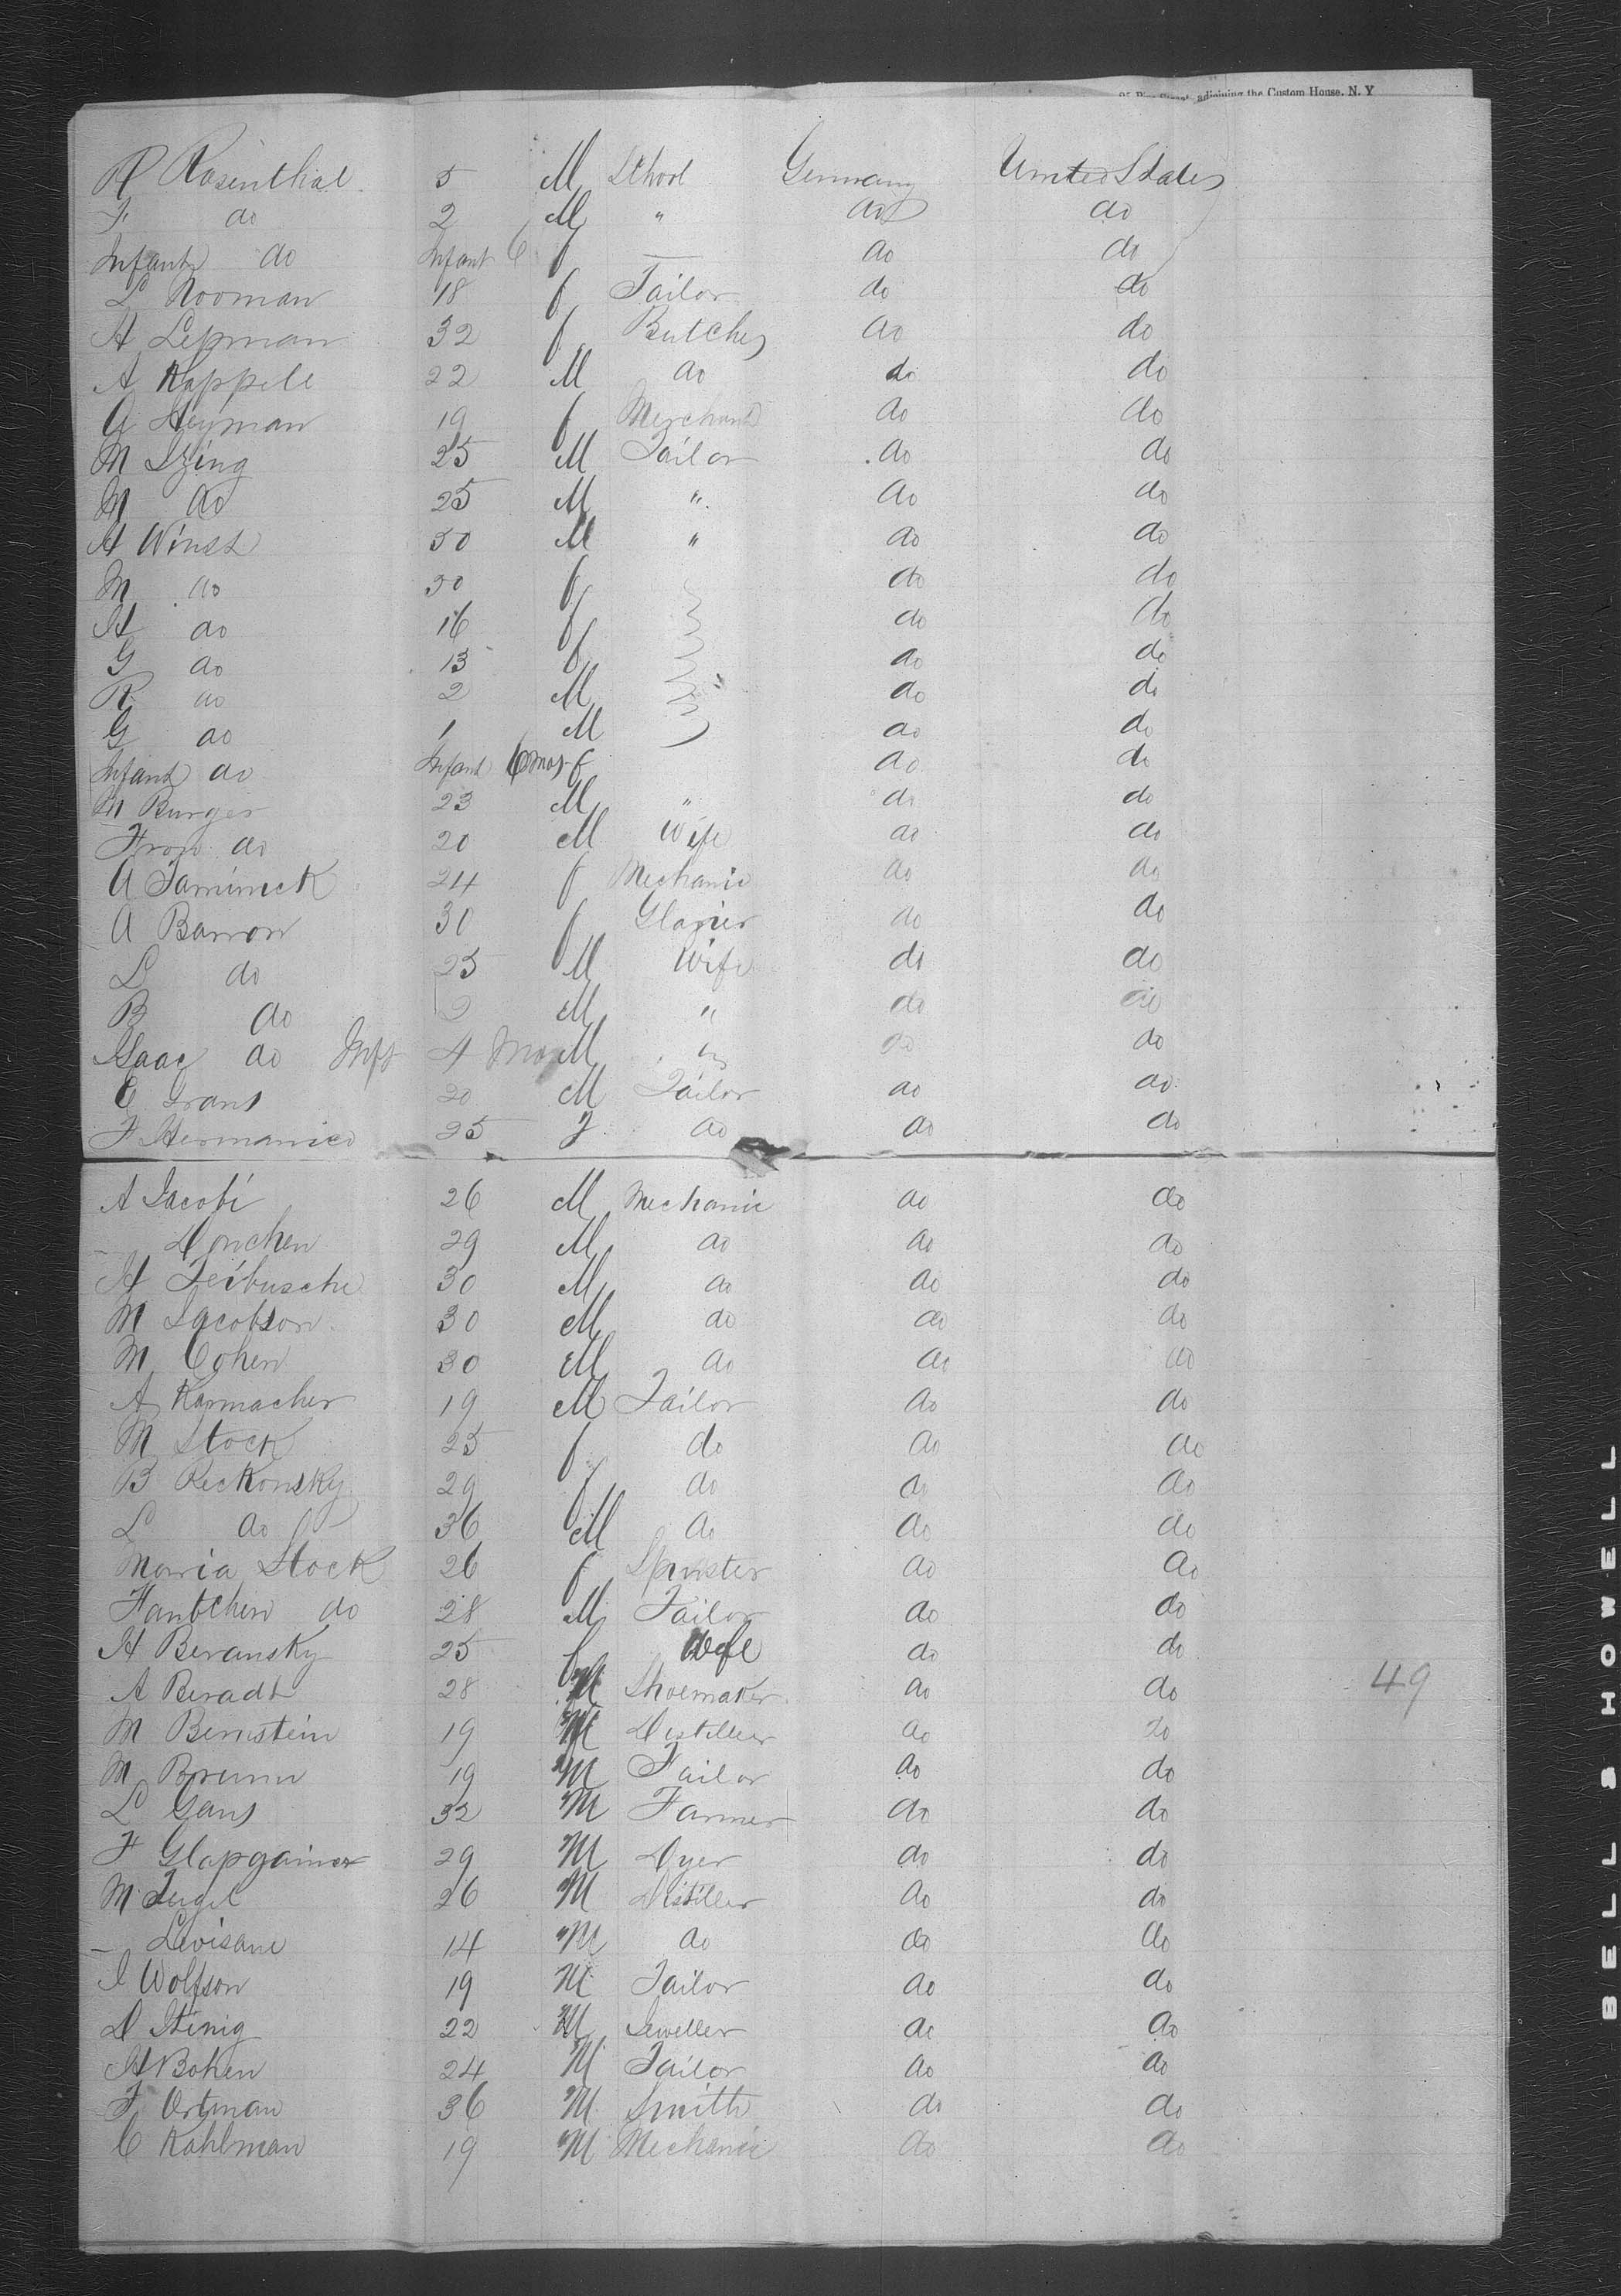 adjoining the Custom House, N. Y
R Rosenthal 5 M School Germany United States
F do 2 M " do do
Infant do Infant 6 f — do do
L Rooman 18 f Tailor do do
A Lepman 32 f Butcher do do
A Kappele 22 M do do do
A Heyman 19 f Merchant do do
M Izing 25 M Tailor do do
M do 25 M " do do
H Winst 30 M " do do
M do 30 f do do
H do 16 f do do
G do 13 f do do
R do 2 M do do
G do 1 M do do
Infant do Infant 6 mos f do do
M Burger 23 M " do do
Frau do 20 M Wife do do
A 24 f Mechanic do do
A Barron 30 f Glazier do do
L do 25 M Wife do do
B do M " do do
Isaac do Inft 4 Mos M " do do
C Grans 20 M Tailor do do
F 25 F do do do
A Jacobi 26 M Mechanic do do
— Donchen 29 M do do do
H Leibusche 30 M do do do
M Jacobson 30 M do do do
M Cohen 30 M do do do
A Karmacher 19 M Tailor do do
M Stock 25 f do do do
B Reckonsky 29 f do do do
L do 36 M do do do
Maria Stock 26 f Spinster do do
do 28 M Tailor do do
H Beransky 25 f Wife do do
A Beradt 28 M Shoemaker do do 49
M Bernstein 19 M Distiller do do
M Brunn 19 M Tailor do do
L Gans 32 M Farmer do do
F 29 M Dyer do do
M 26 M Distiller do do
— Levisane 14 M do do do
I Wolfson 19 M Tailor do do
D Hinig 22 M Jeweller do do
H Bohen 24 M Tailor do do
F Ortman 36 M Smith do do
C Kahlman 19 M Mechanic do do
BELL & HOWELL